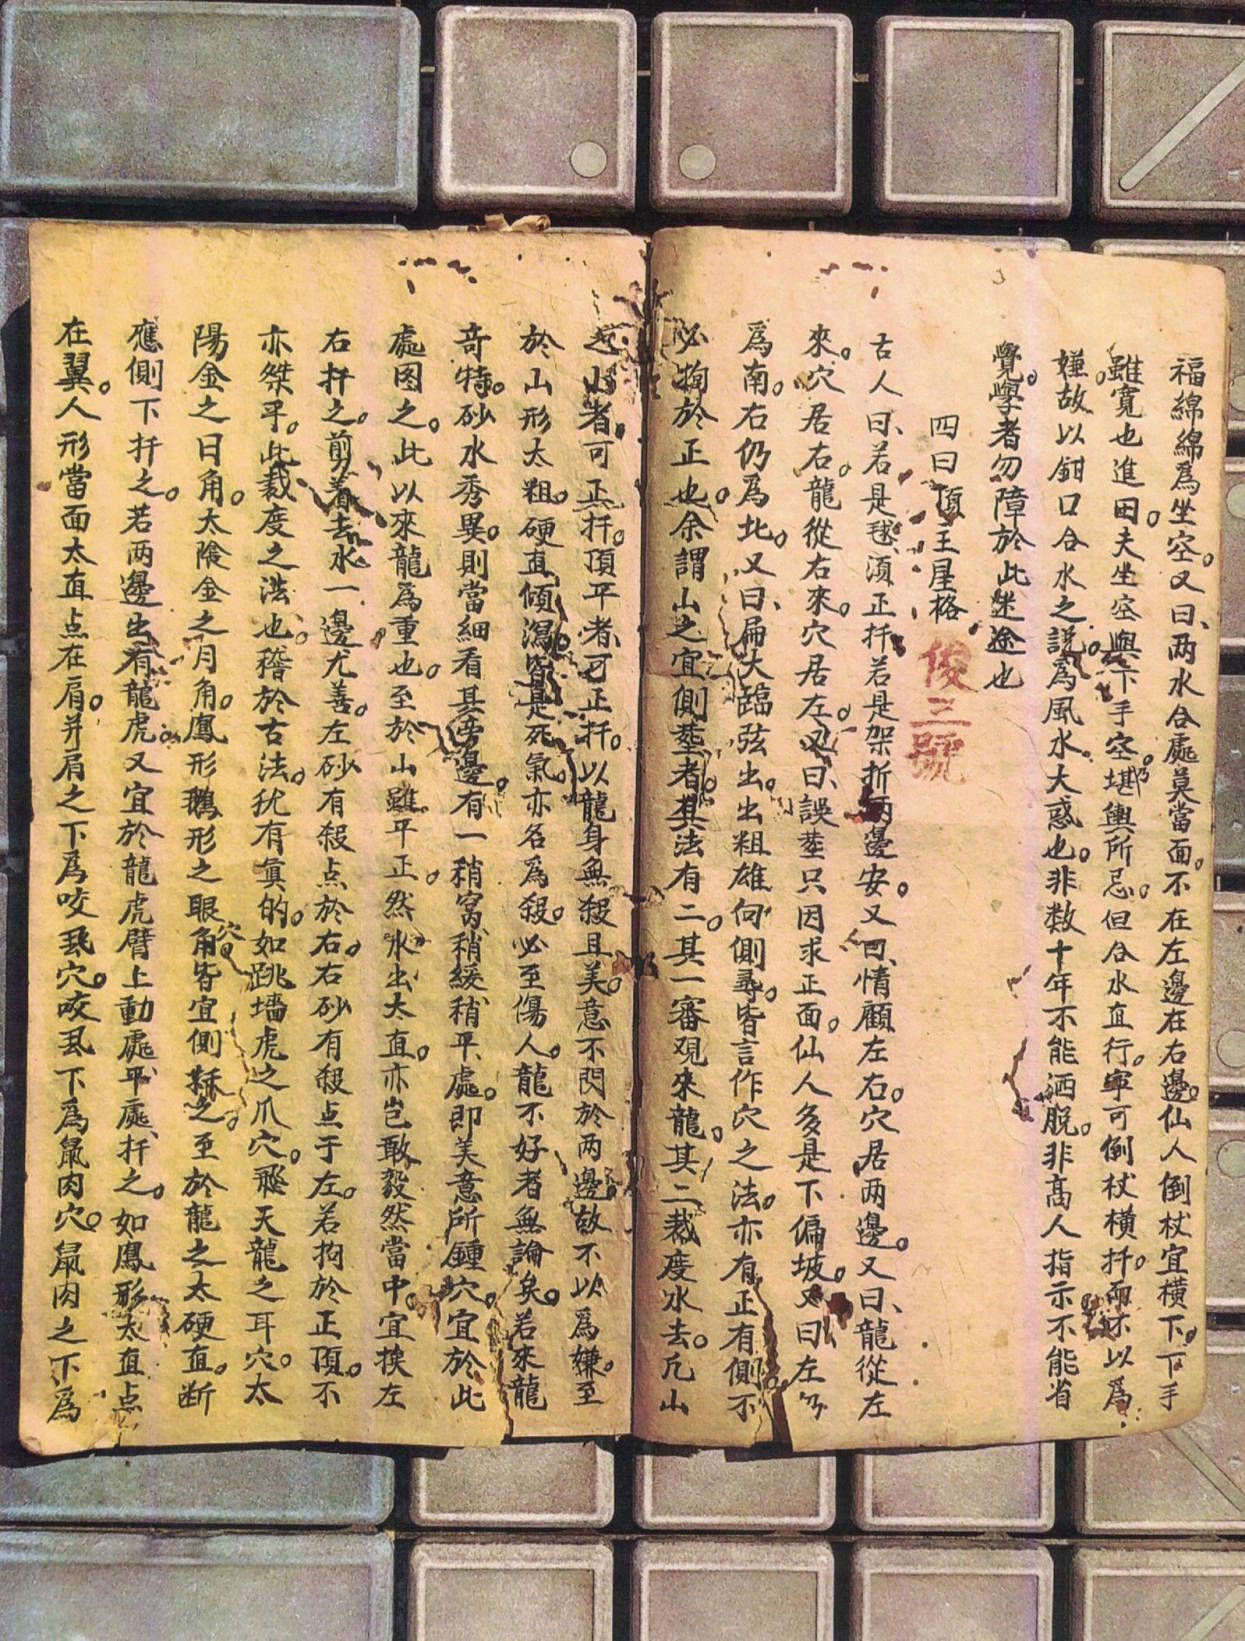 福綿綿爲坐空。又曰、两水合處莫當面。不在左邊在右邊。仙人倒杖宜横下。下手
雖寬也進田。夫坐空與下手空。堪輿所忌。但合水直行。寧可倒杖横扦。而不以爲
嫌。故以鉗口合水之説。爲風水。大惑也。非数十年不能洒脱。非高人指示不能省
覺。學者勿障於此迷途也
四曰頂王星格
俊三號
古人曰、若是毬、須正扦。若是架折两邊安。又曰、情顧左右。穴居两邊。又曰、龍從左
來。穴居右。龍從右來。穴居左。又曰、誤塟只因求正面。仙人多是下偏坡。又曰左
爲南。右仍爲北。又曰、扁大臨弦出。出粗雄向側尋。皆言作穴之法。亦有正有側不
必拘於正也。余謂山之宜側塟者。其法有二。其一審观來龍。其二裁度水去。凡山
者。可正扦。頂平者、可正扦。以龍身無殺且美。意不閃於两邊。故不以爲嫌。至
於山形太粗。硬直傾瀉。皆是死氣。亦名爲殺。必至傷人。龍不好者無論矣。若來龍
奇特。砂水秀異。則當細看其旁邊。有一稍窩、稍緩、稍平、處。即美意所鍾。穴宜於此
處图之。此以來龍爲重也。至於山雖平正。然水出太直。亦岂敢毅然當中。宜挨左
右扦之。剪着去水一邊尤善。左砂有殺点於右。右砂有殺点于左。若拘於正頂。不
亦桀乎。此裁度之法也。稽於古法。犹有真的。如跳墙虎之爪穴。飛天龍之耳穴。太
陽金之日角。太陰金之月角。鳳形鵝形之眼角穴。皆宜側扦之。至於龍之太硬直。断
應側下扦之。若两邊出有龍虎又宜於龍虎臂上動處、平處、扦之。如鳳形太直点
在翼。人形當面太直点在肩。并肩之下爲咬虱穴。咬虱下爲鼠肉穴。鼠肉之下爲